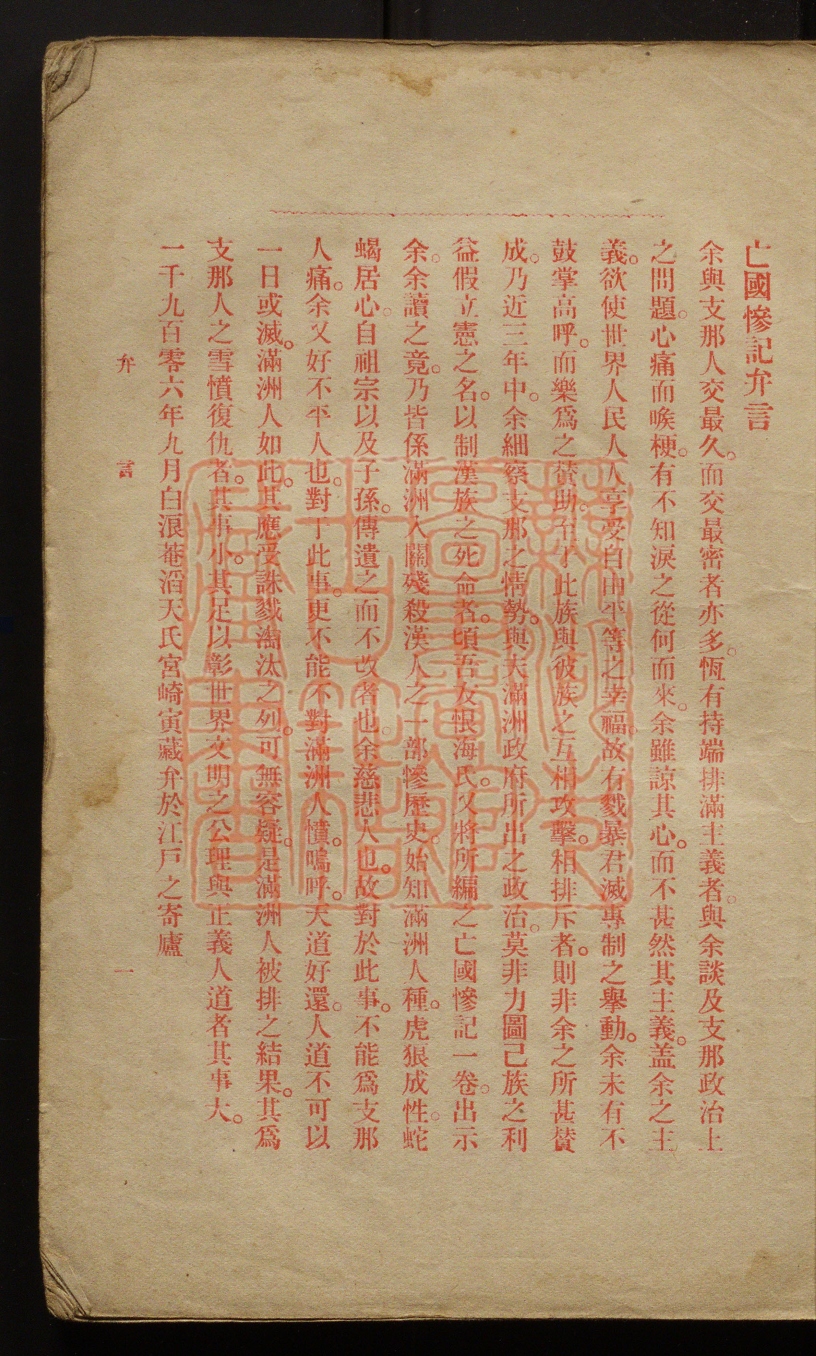 亡國慘記弁言
余與支那人交最久。而交最密者亦多。恆有持端排滿主義者。與余談及支那政治上
之問題。心痛而喉梗。有不知淚之從何而來。余雖諒其心。而不甚然其主義。盖余之主
義。欲使世界人民人人享受自由平等之幸福。故有戮暴君滅專制之舉動。余未有不
鼓掌高呼。而樂爲之贊助。至于此族與彼族之互相攻擊。相排斥者。則非余之所甚贊
成。乃近三年中。余細察支那之情勢。與夫滿洲政府所出之政治。莫非力圖己族之利
益。假立憲之名。以制漢族之死命者。頃吾友恨海氏。又將所編之亡國慘記一卷。出示
余。余讀之竟。乃皆係滿洲入關殘殺漢人之一部慘歷史。始知滿洲人種。虎狼成性。蛇
蝎居心。自祖宗以及子孫。傳遺之而不改者也。余慈悲人也。故對於此事。不能爲支那
人痛。余又好不平人也。對于此事。更不能不對滿洲人憤。嗚呼。天道好還。人道不可以
一日或滅。滿洲人如此。其應受誅戮淘汰之列。可無容疑。是滿洲人被排之結果。其爲
支那人之雪憤復仇者。其事小。其足以彰世界文明之公理與正義人道者其事大。
一千九百零六年九月白浪菴滔天氏宮崎寅藏弁於江戸之寄廬
弁言
一